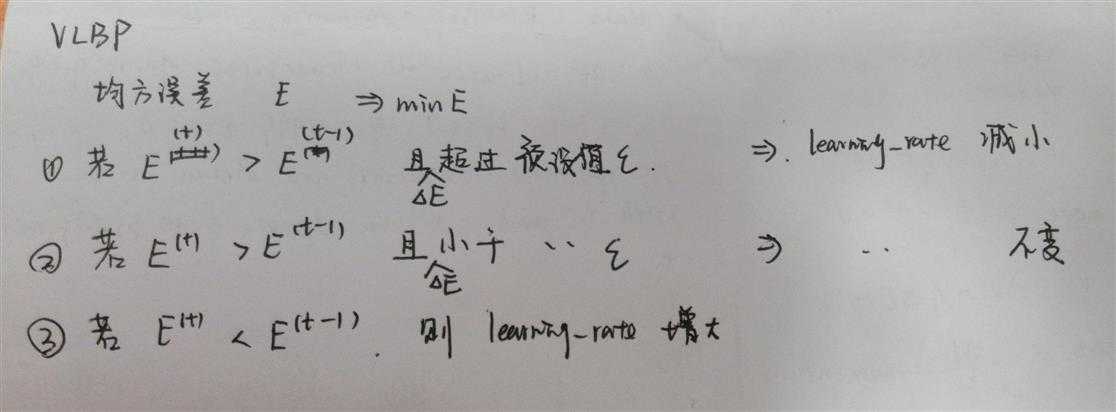 VLBP
均方误差 E ⇒ min E
① 若 E^(t) > E^(t-1) 且ΔE超过预设值 ξ. ⇒. learning_rate 减小
② 若 E^(t) > E^(t-1) 且ΔE小于 ·· ξ ⇒ ·· 不变
③ 若 E^(t) < E^(t-1). 则 learning_rate 增大